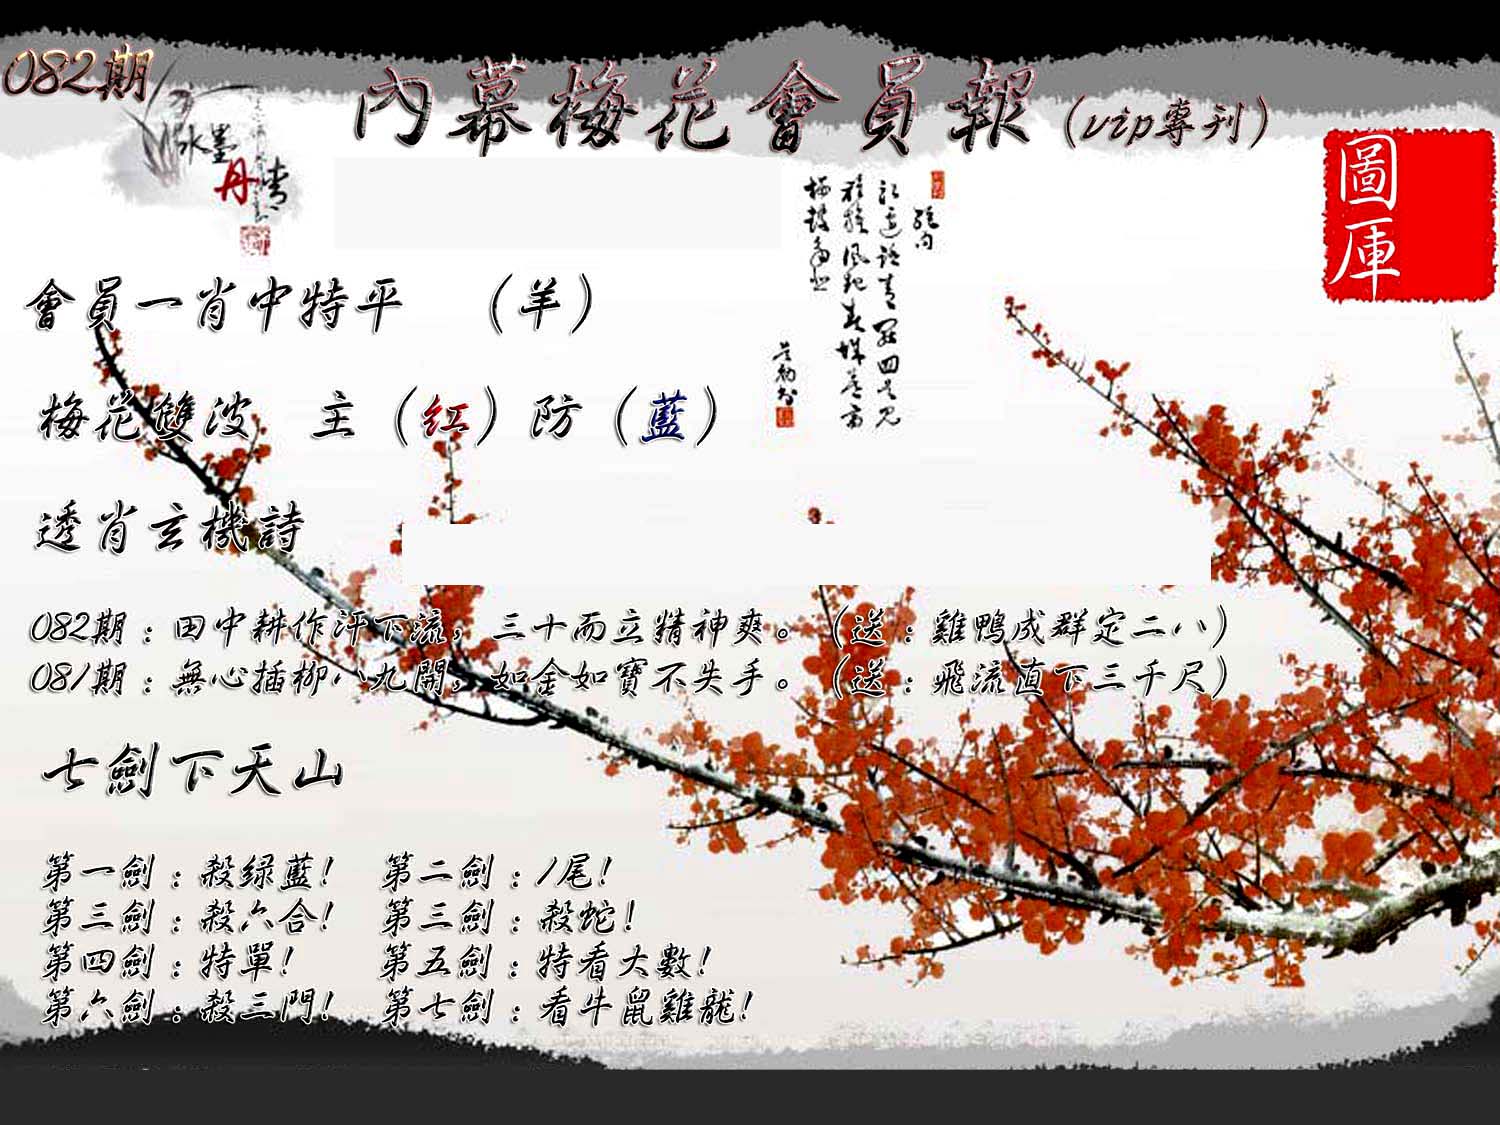 082期
內幕梅花會員報（vip專刊）
水墨
丹青
圖庫
會員一肖中特平 （羊）
梅花雙波 主（紅）防（藍）
透肖玄機詩
082期：田中耕作汗下流，三十而立精神爽。（送：雞鴨成群定二八）
081期：無心插柳八九開，如金如寶不失手。（送：飛流直下三千尺）
七劍下天山
第一劍：殺绿藍! 第二劍：1尾!
第三劍：殺六合! 第三劍：殺蛇!
第四劍：特單! 第五劍：特看大數!
第六劍：殺三門! 第七劍：看牛鼠雞龍!